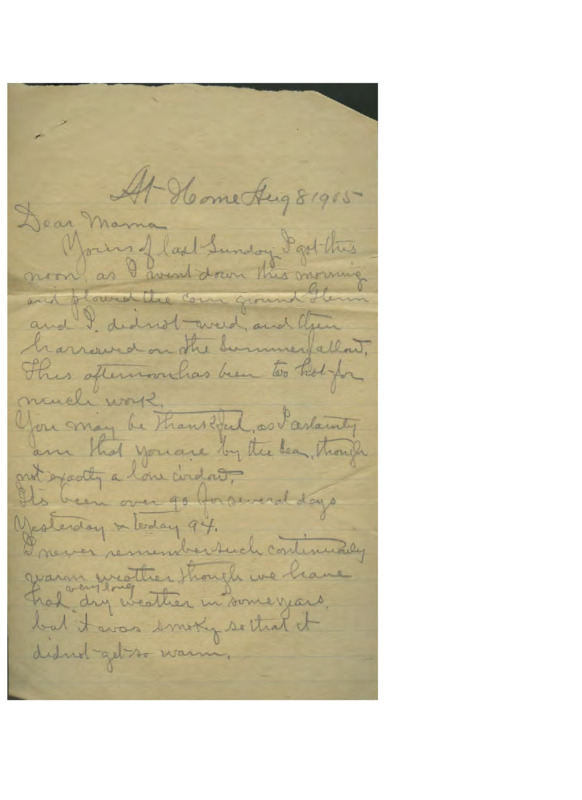 At Home Aug 8 1905
Dear Mama
Yours of last Sunday I got this
noon, as I went down this morning
and plowed the corn ground Glenn
and I did not weed, and then
harrowed on the Summerfallow.
This afternoon has been too hot for
much work.
You may be thankful, as I certainly
am that you are by the Sea, though
not exactly a lone
Its been over 90 for several days
Yesterday & today 94.
I never remember such continually
warm weather, though we have
had very long dry weather in some years,
but it was smoky so that it
did not get so warm.